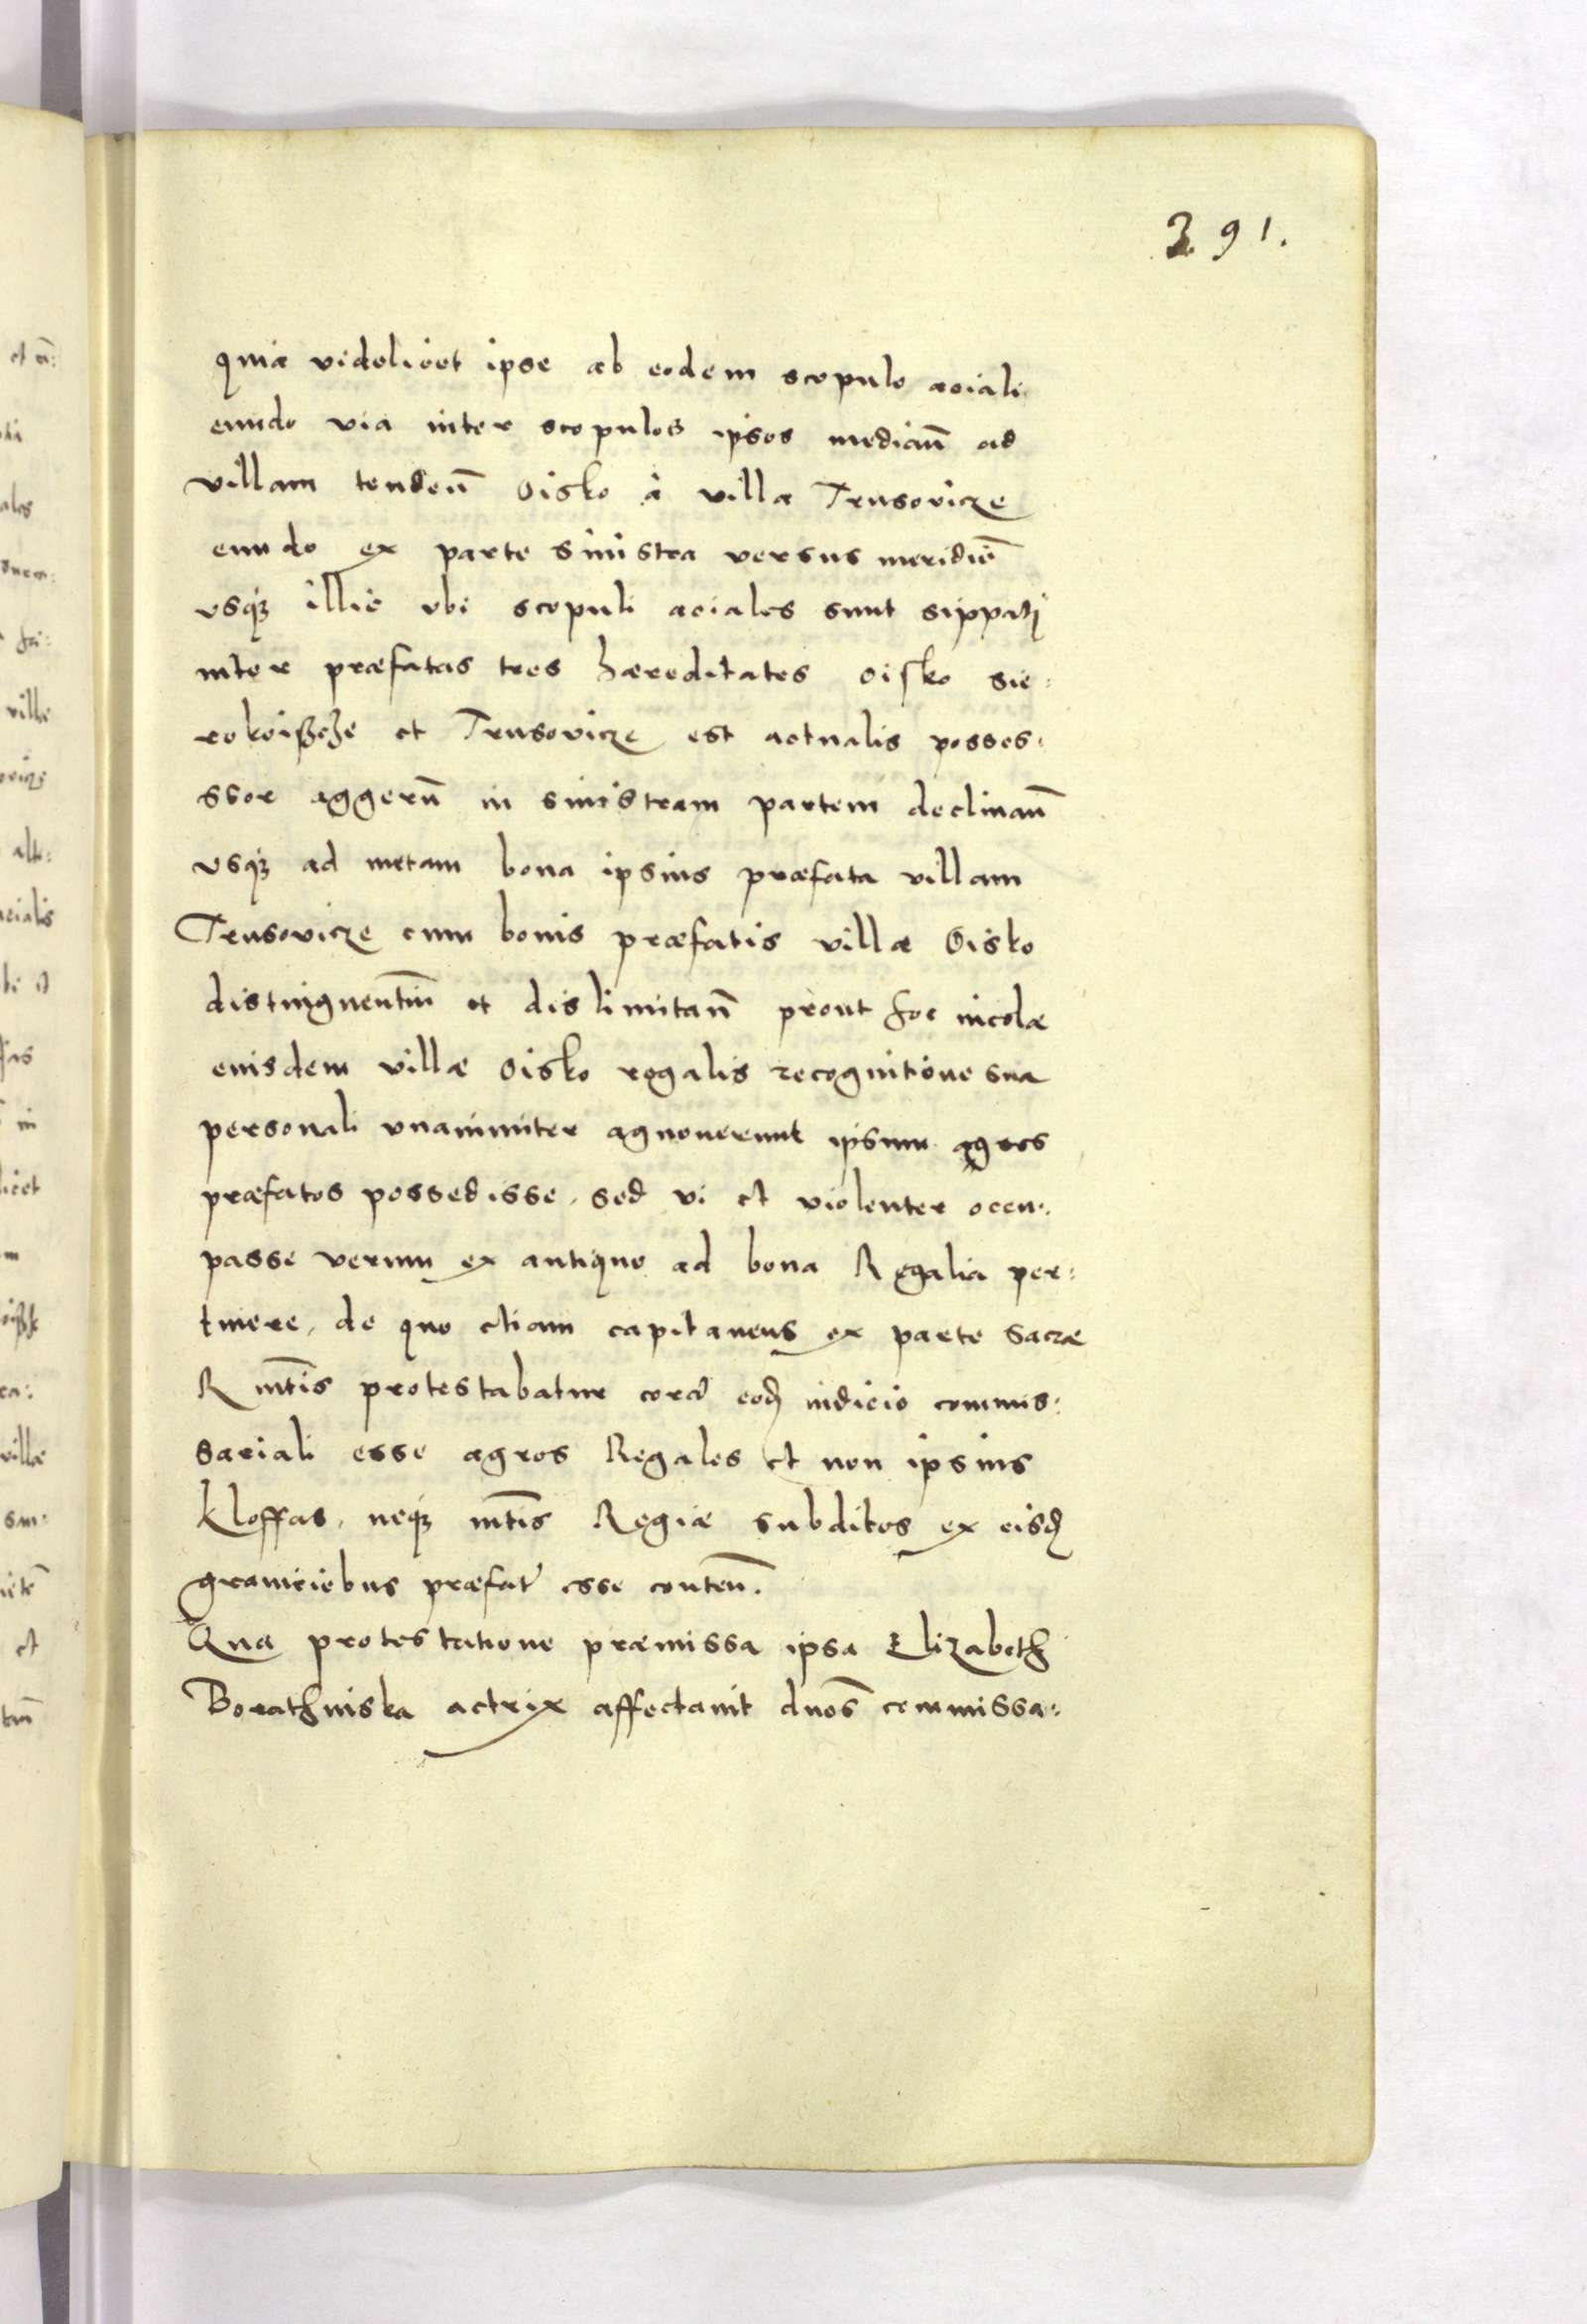 391.
quia videlicet ipse ab eodem scopulo aciali
eundo via inter scopulos ipsos median̄ ad
villam tenden̄ Oisko à villa Trusovicze
eundo ex parte sinistra versus meridiē
vsqꝫ illic vbi scopuli aciales sunt sippati
inter præfatas tres hæreditates Oisko Sie:
rokoißche et Trusovicze est actualis posses:
ssor aggerū in sinistram partem declinan̄
vsqꝫ ad metam bona ipsius præfata villam
Trusovicze cum bonis præfatis villæ Oisko
distinguentiū et dislimitan̄ prout hoc incolæ
eiusdem villæ Oisko regalis recognitione sua
personali vnanimiter agnouerunt ipsum agros
præfatos possedisse, sed vi et violenter occu:
passe verum ex antiquo ad bona Regalia per:
tinere, de quo etiam capitaneus ex parte Sacræ
R mt̄is protestabatur corā eod iudicio commis:
sariali esse agros Regales et non ipsius
kloffas, neqꝫ mt̄is Regiæ subditos ex eisd
graniciebus præfat esse conten̄.
Qua protestatione præmissa ipsa Elizabeth
Borathniska actrix affectauit dnos̄ commissa:
et
ales
villæ
acialis
in
licet
villæ
et